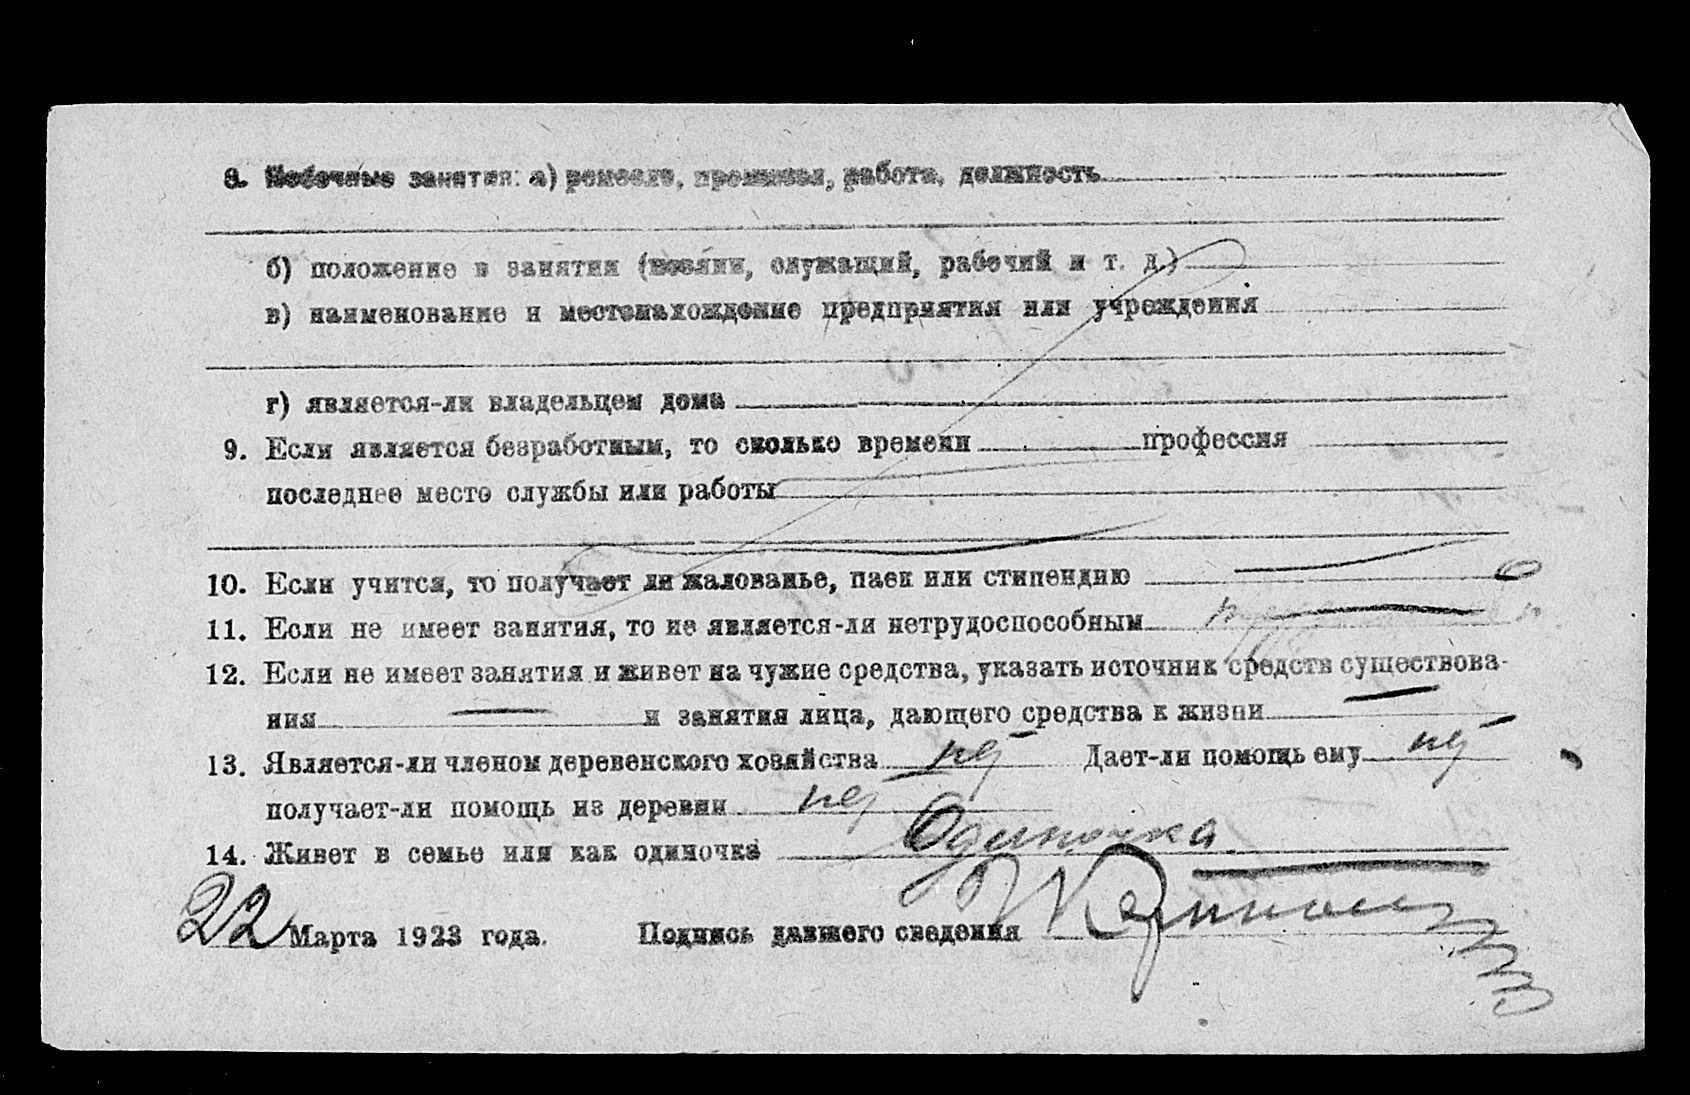 8. Побочные занятия: а) ремесло, промысел, работа, должность
б) положение в занятии (хозяин, служащий, рабочий и т. д.)
в) наименование и местонахождение предприятия или учреждения
г) является-ли владельцем дома
9. Если является безработным, то сколько времени профессия
последнее место службы или работы
10. Если учится, то получает ли жалованье, паек или стипендию
11. Если не имеет занятия, то не является-ли нетрудоспособным
12. Если не имеет занятия и живет на чужие средства, указать источник средств существова-
ния и занятия лица, дающего средства к жизни
13. Является-ли членом деревенского хозяйства нет Дает-ли помощь ему нет
получает-ли помощь из деревни нет
14. Живет в семье или как одиночка Одиночка
22 Марта 1923 года. Подпись давшего сведения